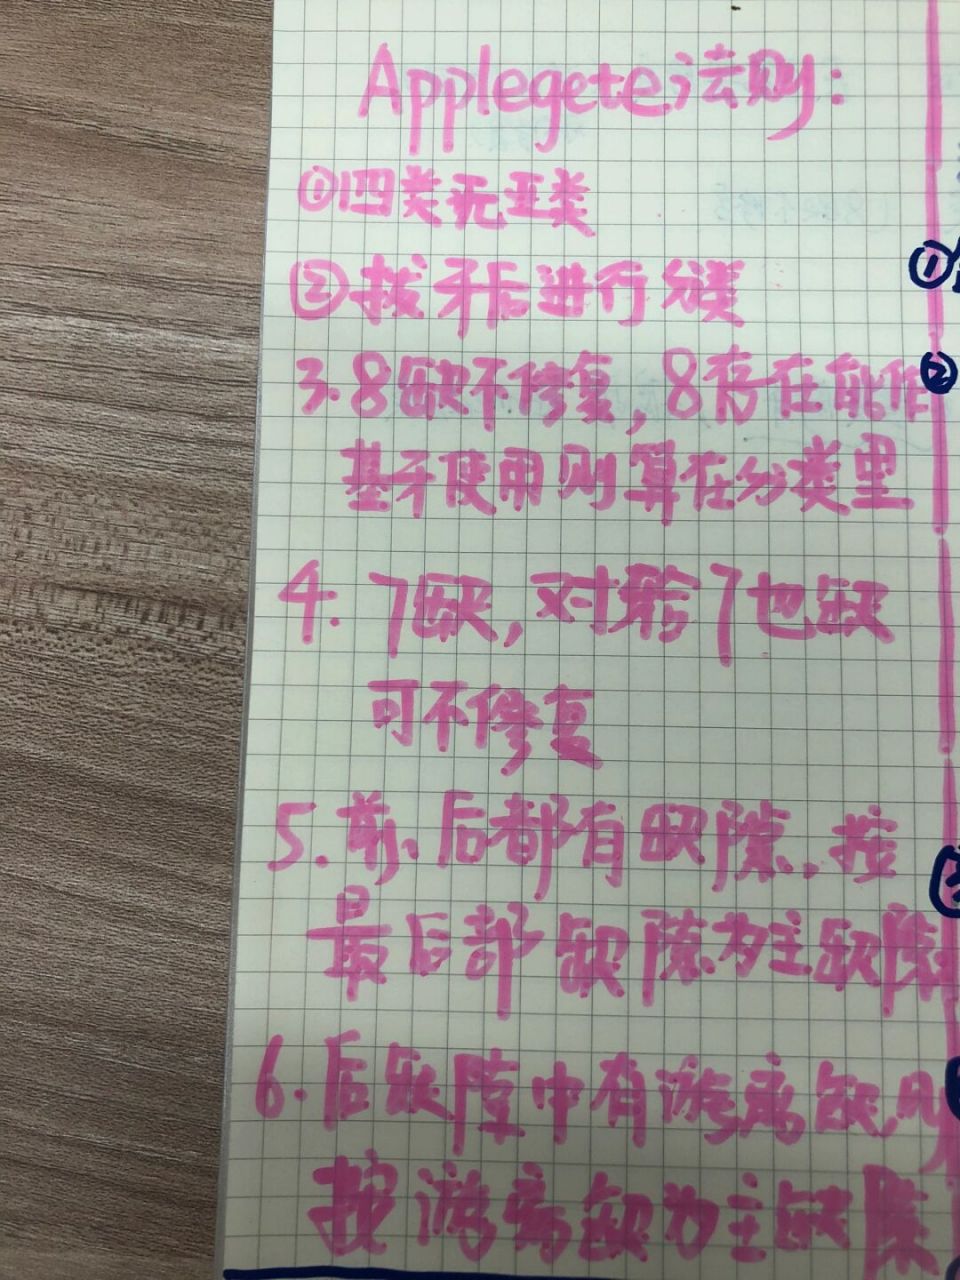 Applegete法则:
①四类无亚类
②拔牙后进行分类
3.8缺不修复,8存在能作
基牙使用则算在分类里
4.7缺,对颌7也缺
可不修复
5.前、后都有缺隙,按
最后部缺隙为主缺隙
6.后缺隙中有游离缺则
按游离缺为主缺隙
①
②